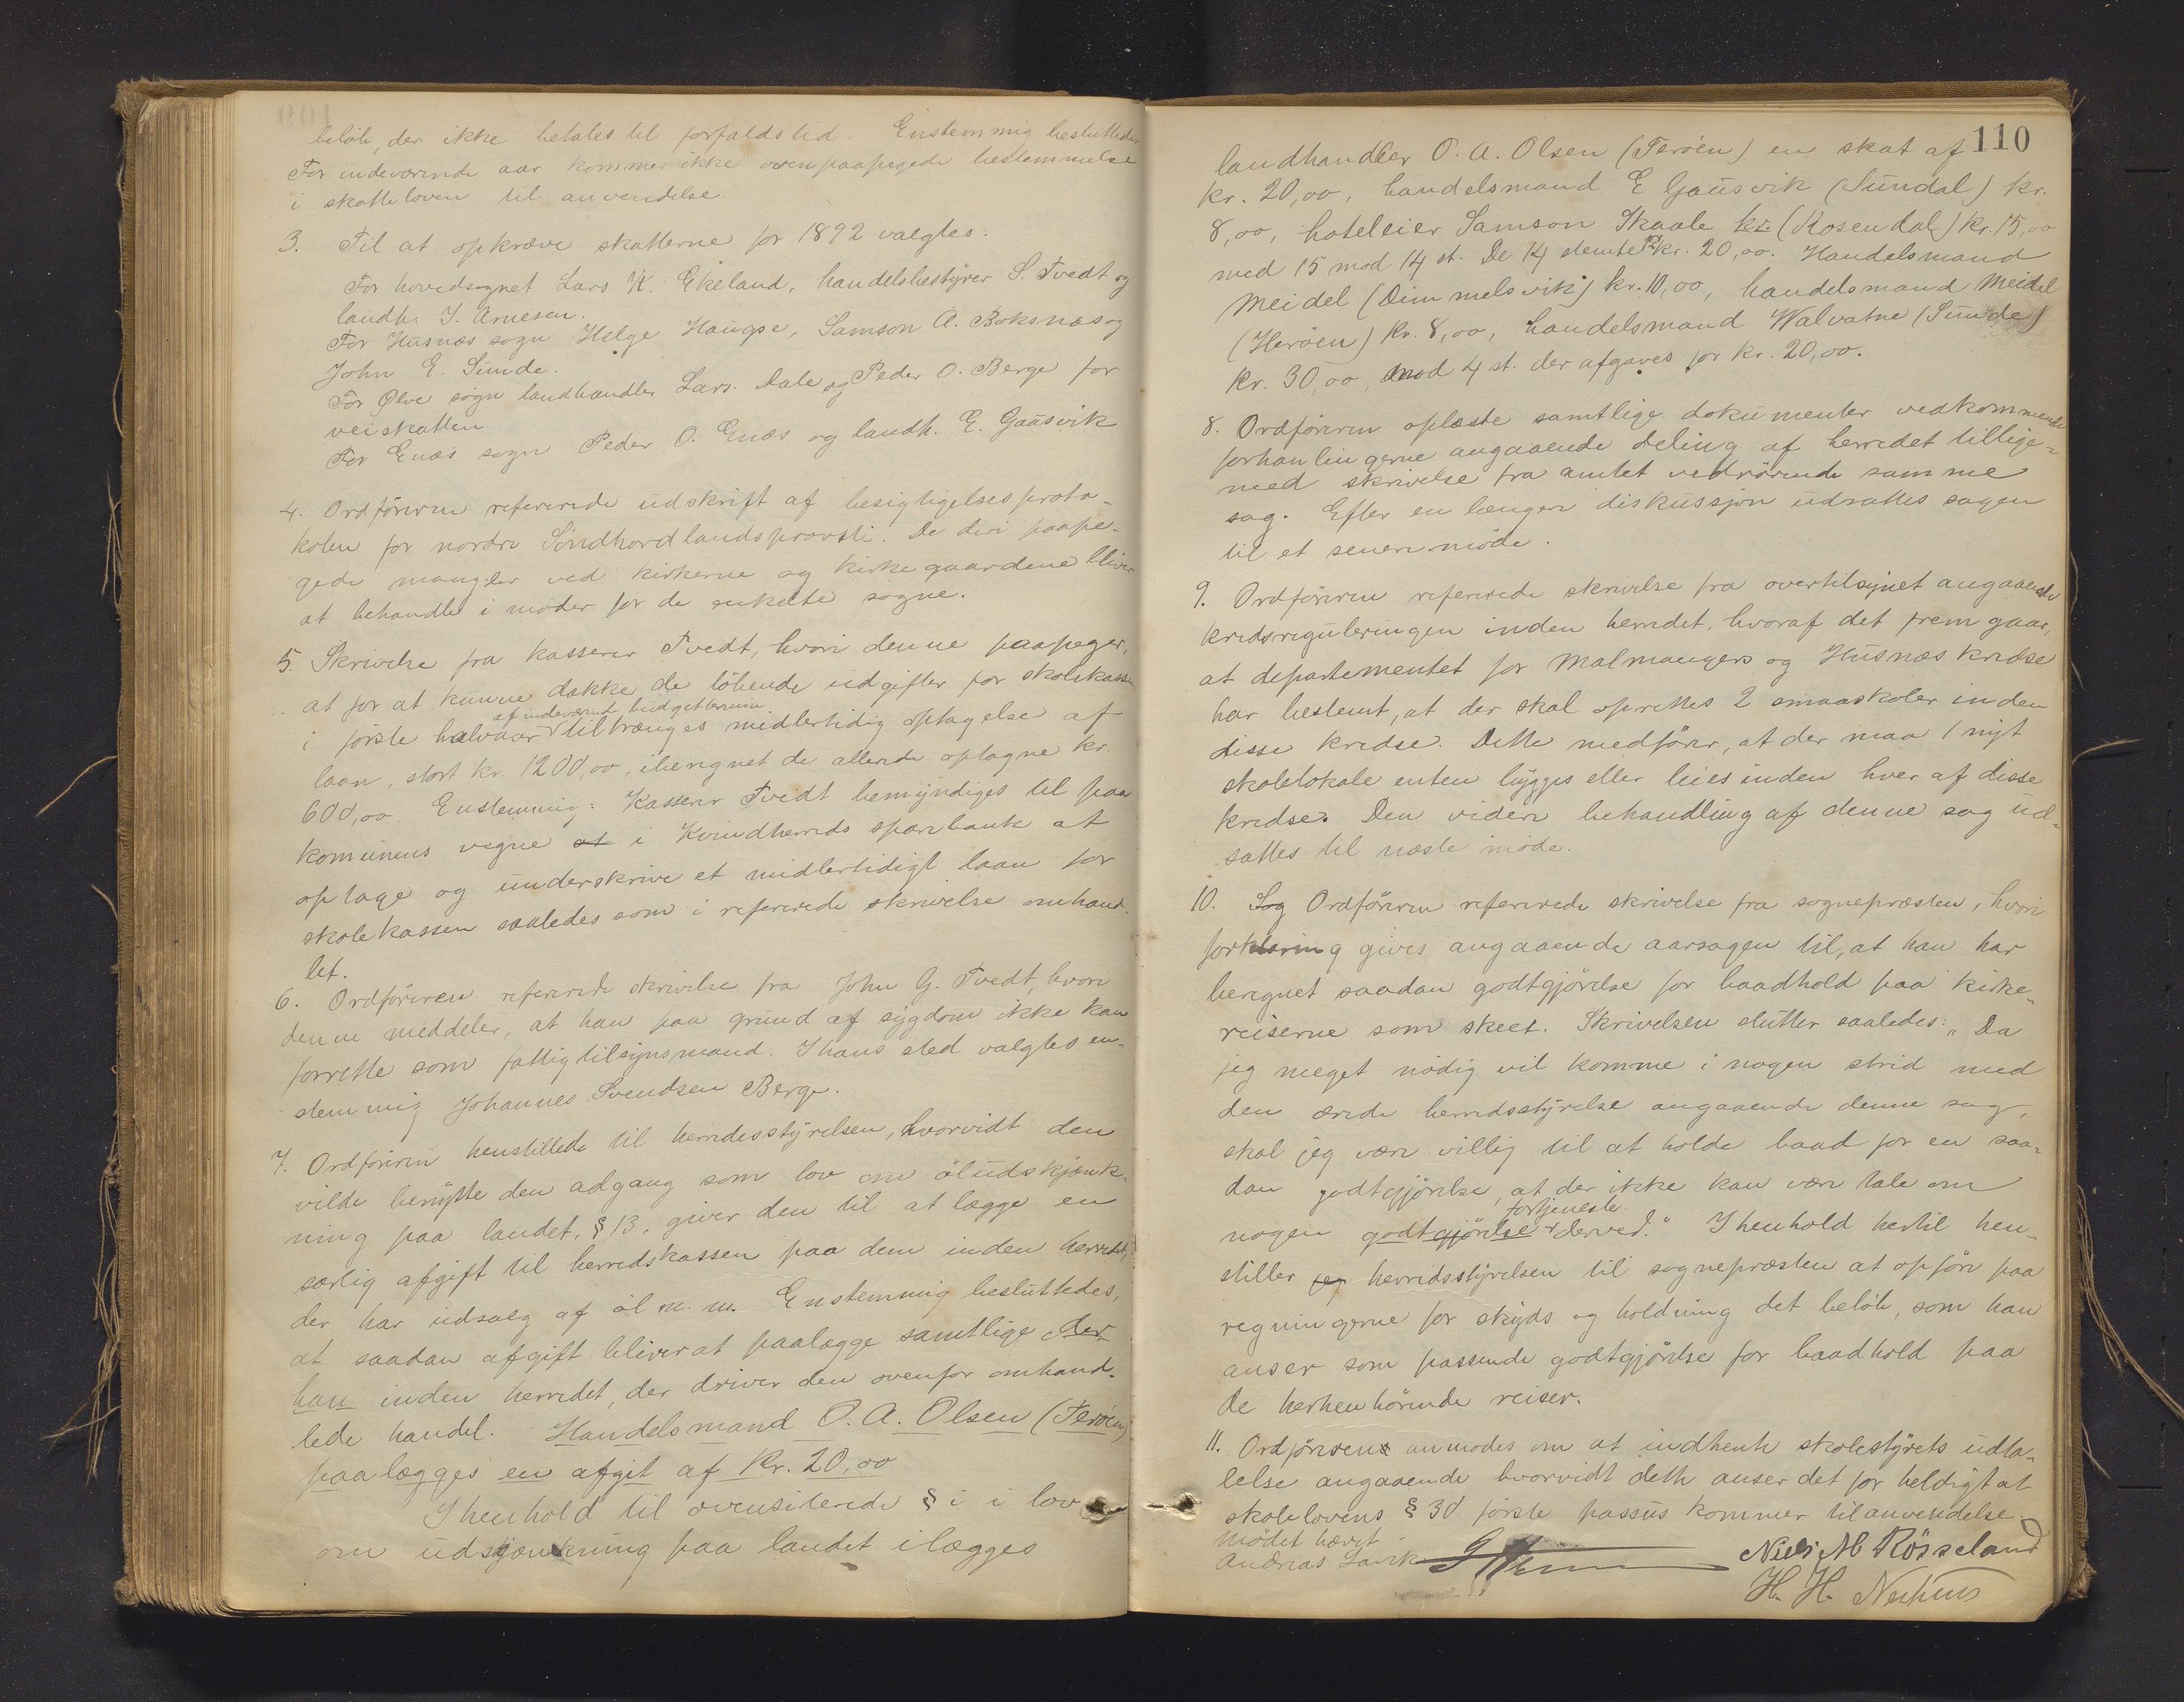 beløb, der ikke betales til forfaldstid. Enstemmig besluttedes
For indeværende aar kommer ikke ovenpaapegede bestemmelse
i skatteloven til anvendelse.
3. Til at opkræve skatterne for 1892 valgtes:
For hovedsognet Lars K. Ekeland, handelsbestyrer S. Tvedt og
landh. J. Arnesen.
For Husnæs sogn Helge Haugse, Samson A. Boksnæs og
John E. Sunde.
For Ølve sogn landhandler Lars. Dale og Peder O. Berge for
veiskatten
For Enæs sogn Peder O. Enæs og landh. E. Gausvik
4. Ordføreren refererede udskrift af besigtigelsesproto-
kolen for nordre Söndhordlandsprovsti. De deri paape-
gede mangler ved kirkerne og kirkegaardene bliver
at behandle i møder for de enkelte sogne.
5. Skrivelse fra kasserer Tvedt, hvori denne paapeger,
at for at kunne dække de löbende udgifter for skolekassen
af indeværend budgettermin
i förste halvaar tiltrænges midlertidig optagelse af
laan, stort kr. 1200,00, iberegnet de allerede optagne kr.
600,00. Enstemmig: Kasserer Tvedt bemyndiges til paa
komunens vegne at i Kvindherreds sparebank at
optage og underskrive et midlertidigt laan for
skolekassen saaledes som i refererede skrivelse omhand-
let.
6. Ordføreren refererede skrivelse fra John G. Tvedt, hvori
denne meddeler, at han paa grund af sygdom ikke kan
forrette som fattigtilsynsmand. I hans sted valgtes en-
stemmig Johannes Svendsen Berge.
7. Ordføreren henstillede til herredsstyrelsen, hvorvidt den
vilde benytte den adgang som lov om öludskjænk-
ning paa landet, § 13, giver den til at lægge en
særlig afgift til herredskassen paa dem inden herredet,
der har udsalg af öl m. m. Enstemmig besluttedes,
at saadan afgift bliver at paalægge samtlige der
han inden herredet, der driver den ovenfor omhand-
lede handel. Handelsmand O. A. Olsen (Teröen)
paalægges en afgit af Kr. 20,00
I henhold til ovensiterede § i i lov
om udsjænkning paa landet ilægges
110
landhandler O. A. Olsen (Teröen) en skat af
kr. 20,00, handelsmand E Gausvik (Sundal) kr.
8,00, hoteleier Samson Skaale kr. (Rosendal) kr. 15,00
med 15 mod 14 st. De 14 stemte for kr. 20,00. Handelsmand
Meidel (Dimmelsvik) kr. 10,00, handelsmand Meidel
(Heröen) kr. 8,00, handelsmand Valvatne (Sunde)
kr. 30,00, mod 4 st. der afgaves for kr. 20,00.
8. Ordføreren oplæste samtlige dokumenter vedkommende
forhanlingerne angaaende deling af herredet tillige-
med skrivelse fra amtet vedrörende samme
sag. Efter en længere diskussjon udsattes sagen
til et senere møde.
9. Ordføreren refererede skrivelse fra overtilsynet angaaende
kredsreguleringen inden herredet, hvoraf det fremgaar,
at departementet for Malmangers og Husnæs kredse
har bestemt, at der skal oprettes 2 smaaskoler inden
disse kredse. Dette medfører, at der maa 1 nyt
skolelokale enten bygges eller leies inden hver af disse
kredse. Den videre behandling af denne sag ud-
sattes til næste møde.
10. Sog Ordføreren refererede skrivelse fra sognepræsten, hvori
forklaring gives angaaende aarsagen til, at han har
beregnet saadan godtgjörelse for baadhold paa kirke-
reiserne som skeet. Skrivelsen slutter saaledes: „Da
jeg meget nödig vil komme i nogen strid med
den ærede herredsstyrelse angaaende denne sag,
skal jeg være villig til at holde baad for en saa-
dan godtgjörelse, at der ikke kan være tale om
fortjeneste
nogen godtgjörelse derved." I henhold hertil hen-
stiller jeg herredsstyrelsen til sognepræsten at opföre paa
regningerne for skyds og holdning det beløb, som han
anser som passende godtgjörelse for baadhold paa
de herhenhörende reiser.
11. Ordføreren anmodes om at indhente skolestyrets udta-
lelse angaaende hvorvidt dette anser det for heldigt at
skolelovens § 30 förste passus kommer til anvendelse.
Mödet hævet
Andreas Larik
Niels M Rösseland
H. H. Neshus